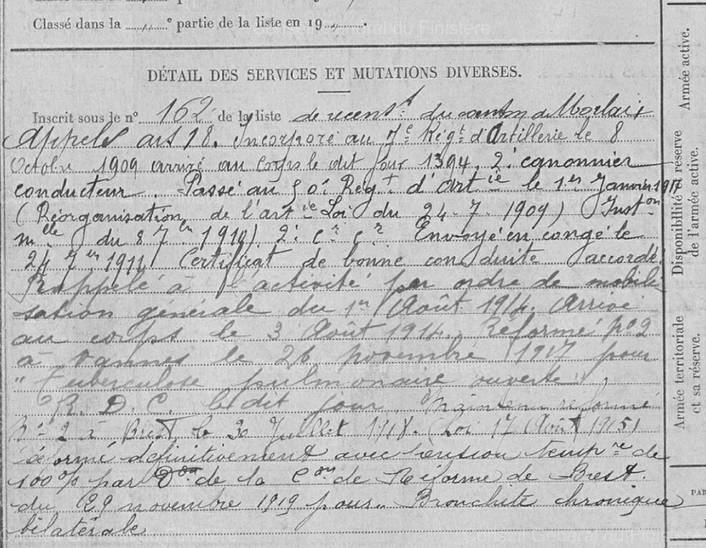 Classé dans la „ e partie de la liste en 19 „
DÉTAIL DES SERVICES ET MUTATIONS DIVERSES.
Inscrit sous le n° 162 de la liste de recens.t du canton de Morlaix
Appelé art 18. Incorporé au 7e Régt d'Artillerie le 8
Octobre 1909 arrivé au Corps le dit jour 1394. 2e canonnier
conducteur. Passé au Régt d'Artie le 1er Janvier
(Réorganisation de l'artie Loi du 24-7-1909) Inston
mlle du 8 7bre 1910) 2e Cr Cr Envoyé en congé le
24 7bre 1911 Certificat de bonne conduite accordé
Rappelé à l'activité par ordre de mobili
sation générale du 1er Août 1914. Arrivé
au corps le 3 Août 1914. Réformé n°2
à Vannes le 26 novembre 1917 pour
"Tuberculose pulmonaire ouverte",
R. D. C. le dit jour Maintenu réformé
N° 2 à Brest le 30 Juillet 1918. (Loi 17 Août 1915)
réformé définitivement avec pension tempre de
100% par Don de la Con de Réforme de Brest
du 29 novembre 1919 pour "Bronchite chronique
bilatérale
Armée active.
Disponibilité et réserve
de l'armée active.
Armée territoriale
et sa réserve.